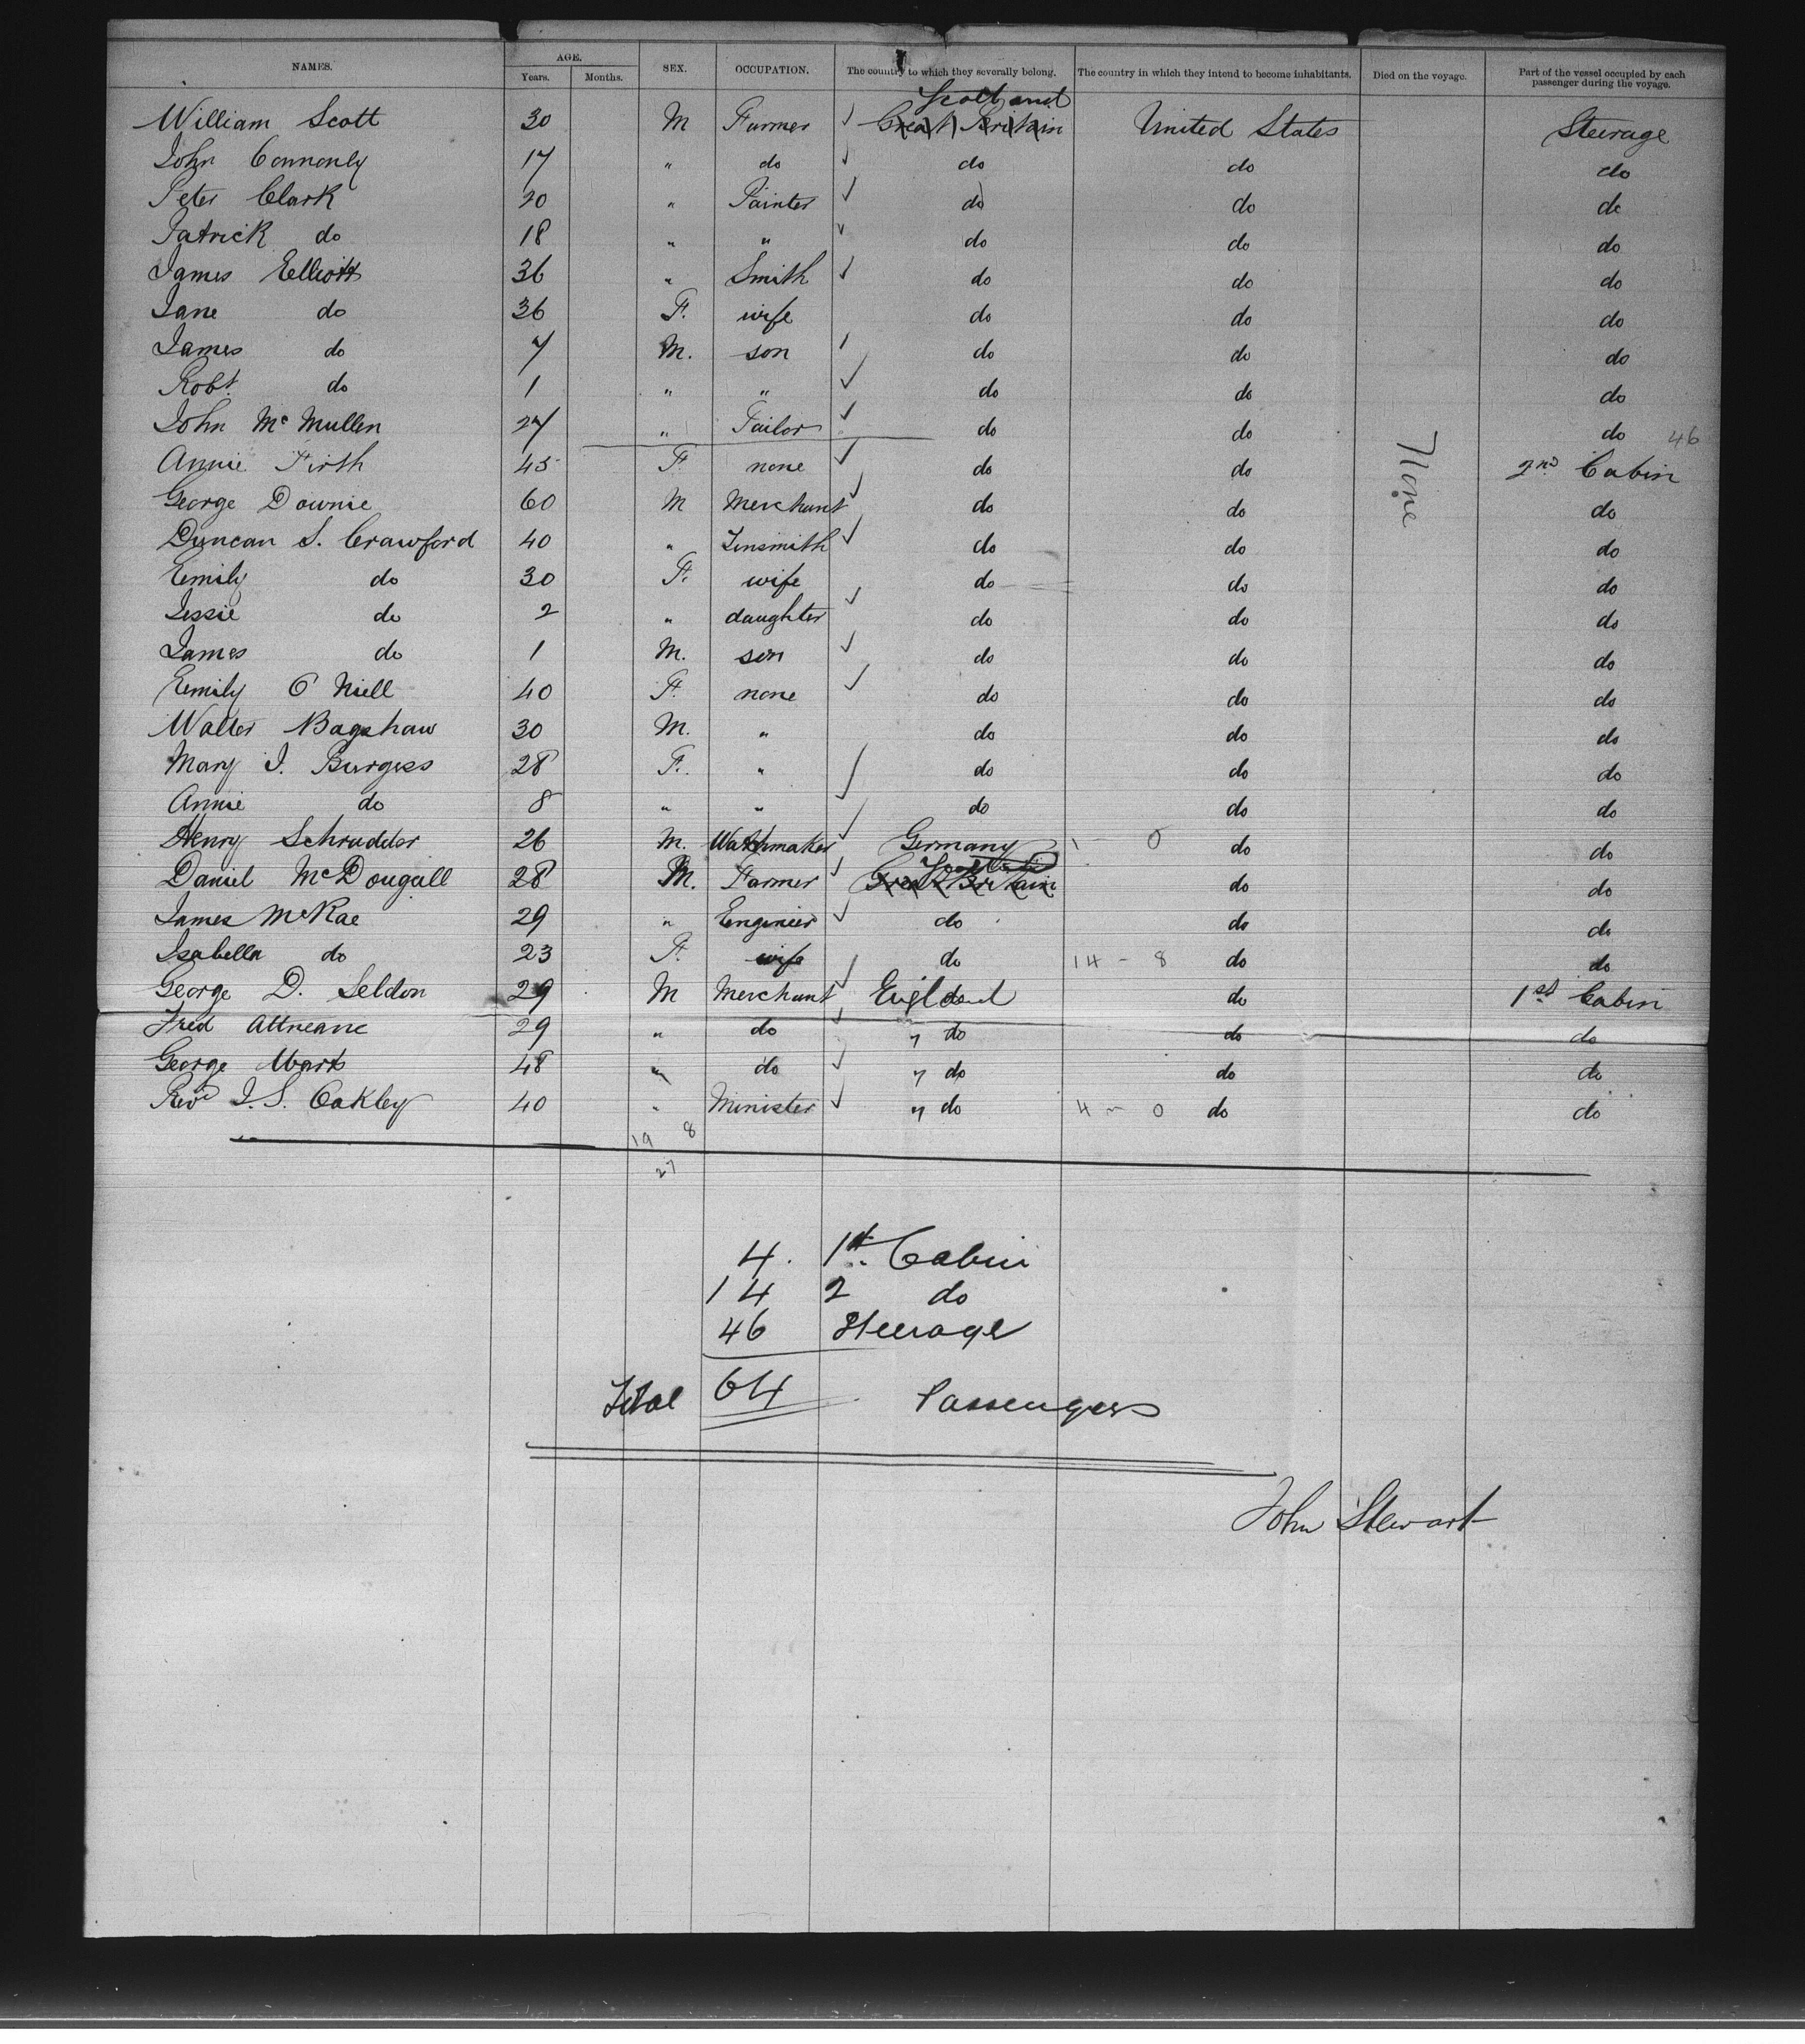 NAMES. AGE. Years. Months. SEX. OCCUPATION. The country to which they severally belong. The country in which they intend to become inhabitants. Died on the voyage. Part of the vessel occupied by each passenger during the voyage.
Scotland
William Scott 30 M Farmer ✓ Great Britain United States Steerage
John Connonly 17 " do ✓ do do do
Peter Clark 20 " Painter ✓ do do do
Patrick do 18 " " ✓ do do do
James Elliott 36 " Smith ✓ do do do
Jane do 36 F. wife do do do
James do 7 M. son do do do
Robt. do 1 " " ✓ do do do
John McMullen 27 " Tailor ✓ do do do 46
None
Annie Firth 45 F none ✓ do do 2nd Cabin
George Downie 60 M Merchant ✓ do do do
Duncan S. Crawford 40 " Tinsmith ✓ do do do
Emily do 30 F. wife do do do
Jessie do 2 " daughter ✓ do do do
James do 1 M. son ✓ do do do
Emily O'Niell 40 F. none ✓ do do do
Walter Bagshaw 30 M. " do do do
Mary J. Burgess 28 F. " ✓ do do do
Annie do 8 " " do do do
Henry Schrudder 26 M. Watchmaker ✓ Germany 1 - 0 do do
Scotland
Daniel McDougall 28 M. Farmer ✓ Great Britain do do
James McRae 29 " Engineer ✓ do do do
Isabella do 23 F. wife do 14 - 8 do do
George D. Seldon 29 M Merchant ✓ England do 1st Cabin
Fred 29 " do ✓ " do do do
George 48 " do ✓ " do do do
Revd J. S. Oakley 40 " Minister ✓ " do 4 - 0 do do
19 8
27
4. 1st. Cabin
14 2 do
46 Steerage
Total 64 Passengers
John Stewart